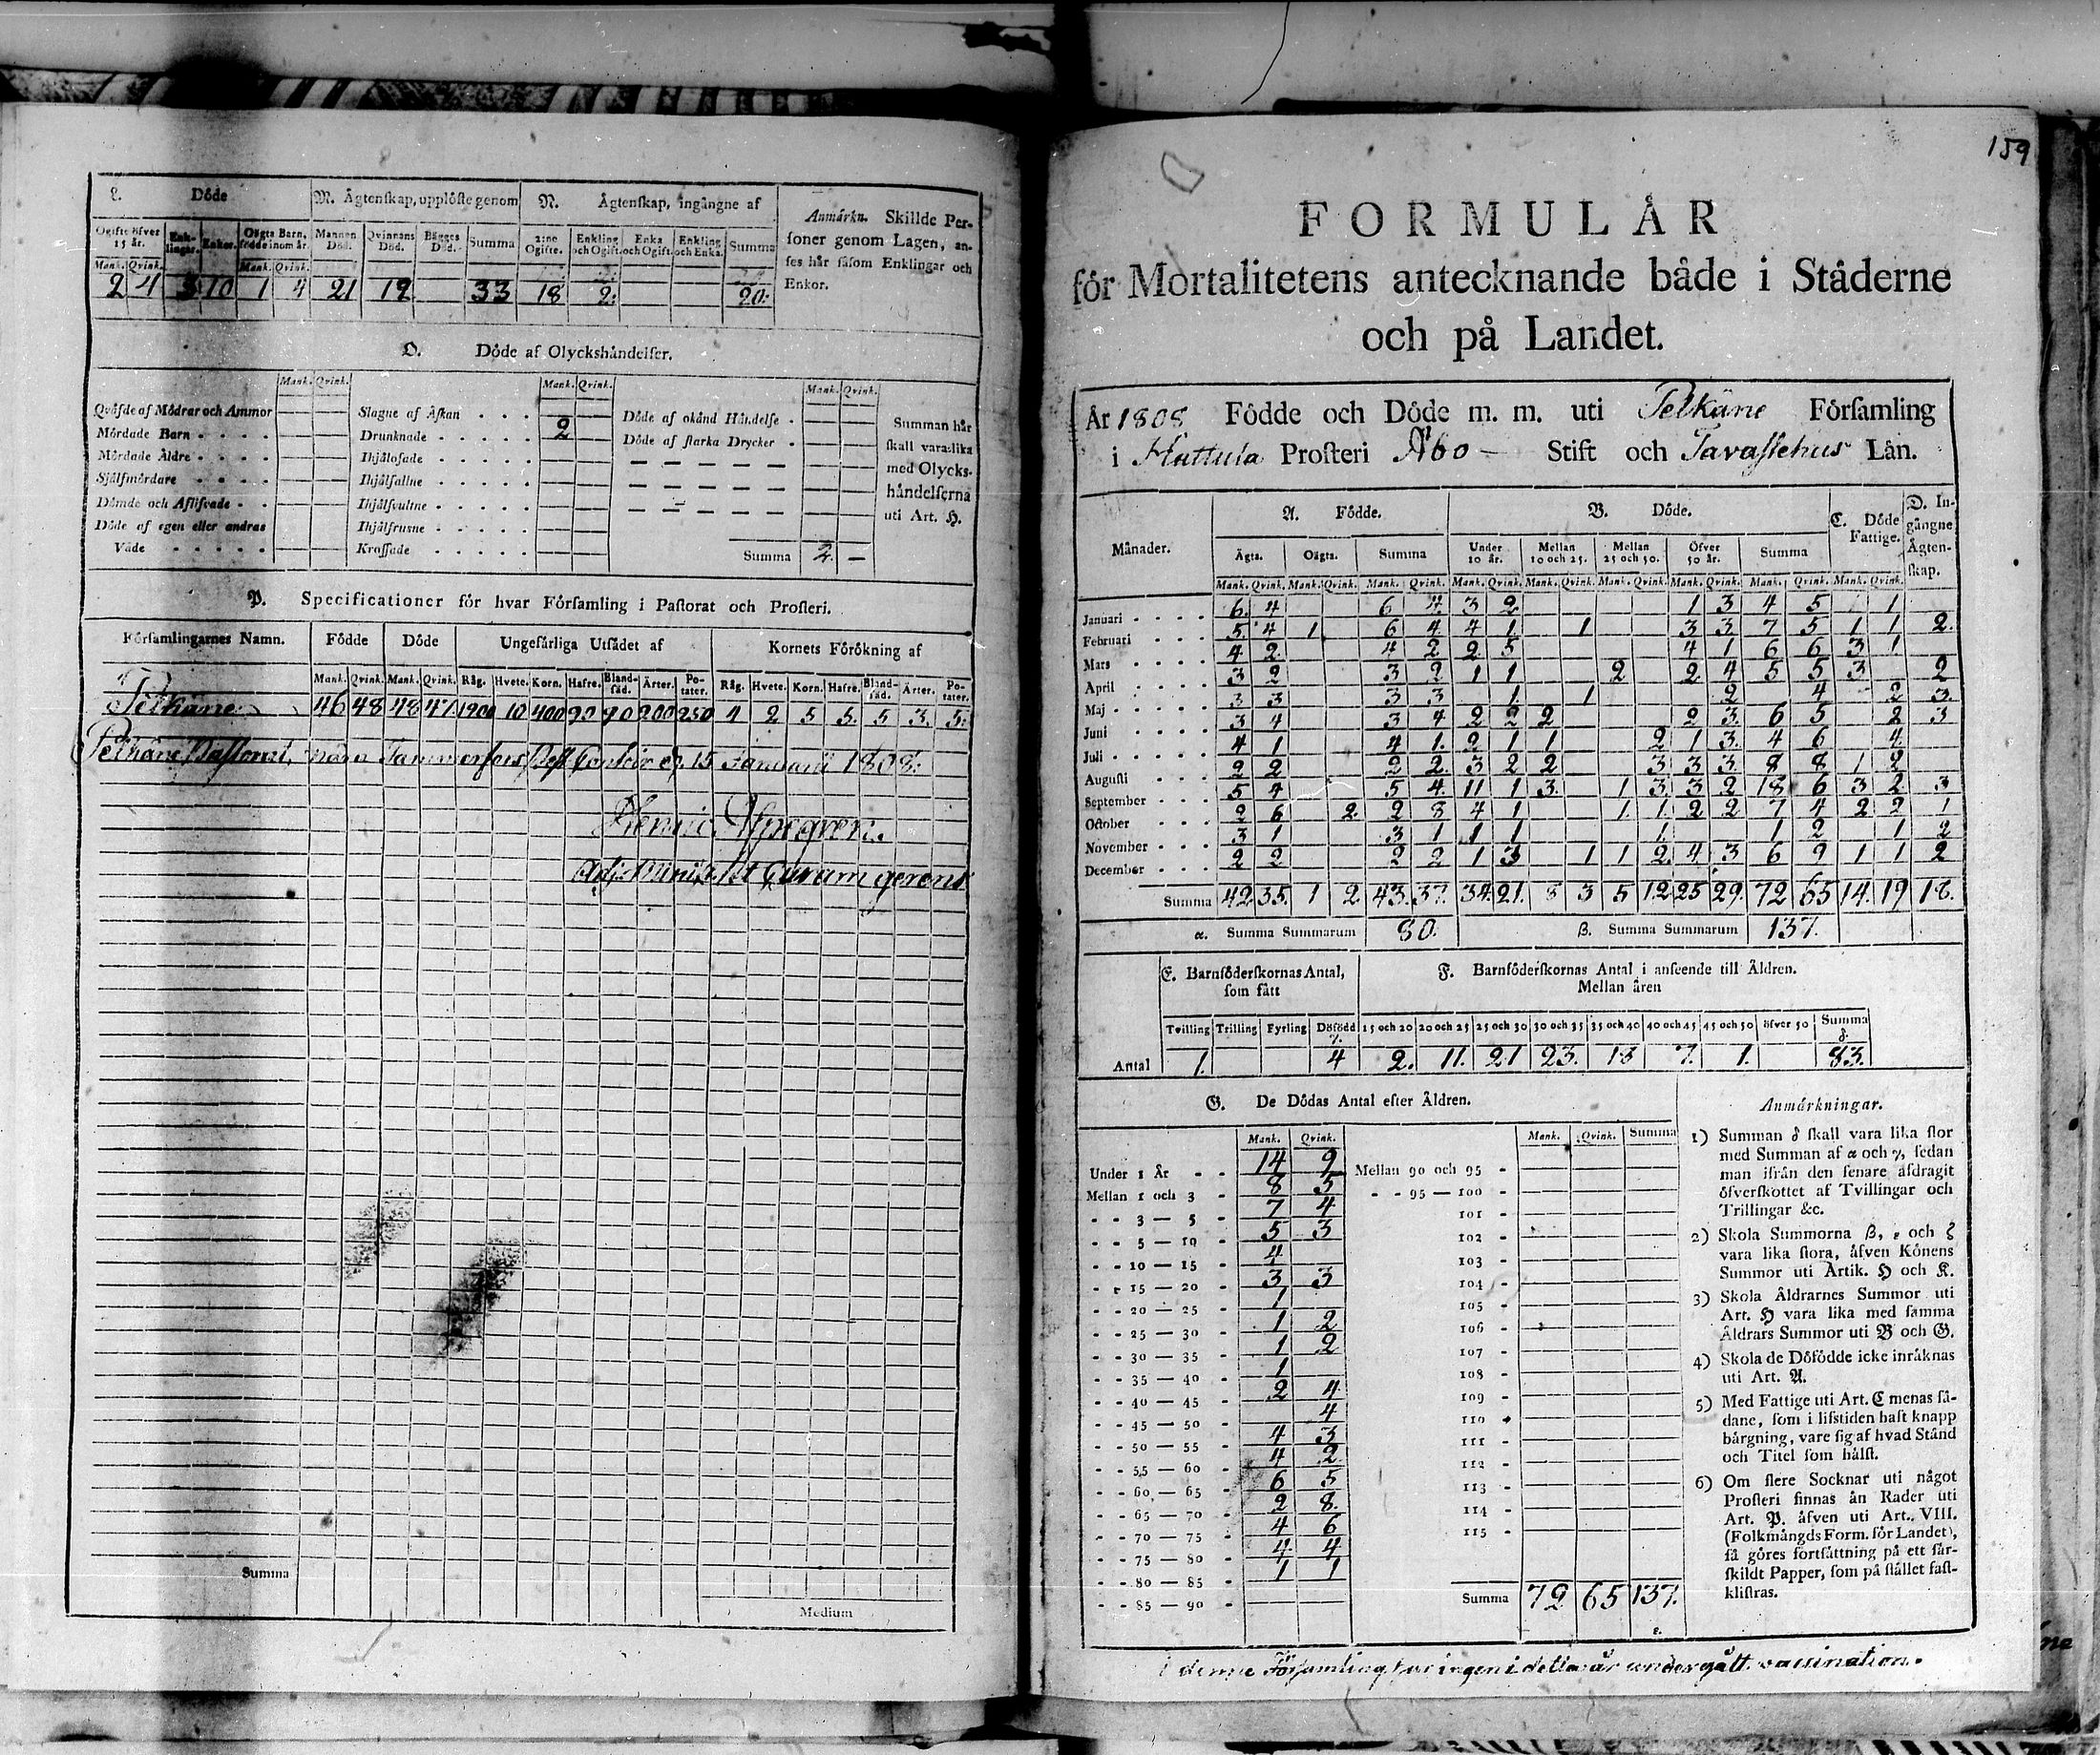 L. Döde
M. Ägtenskap, upplöste genom
N. Ägtenskap, ingångne af
Anmärkn. Skillde Per-
soner genom Lagen, an-
ses här såsom Enklingar och
Enkor.
Ogifte öfver 15 år. Enk-lingar. Enkor. Oägta Barn, födde inom år. Mannen Död. Qvinnans Död. Bägges Död. Summa 2:ne Ogifte. Enkling och Ogift. Enka och Ogift. Enkling och Enka. Summa
Mank. Qvink. Mank. Qvink.
2 4 3 10 1 4 21 12 33 18 2. 20.
O. Döde af Olyckshändelser.
Mank. Qvink. Mank. Qvink. Mank. Qvink.
Qväfde af Mödrar och Ammor
Mördade Barn
Mördade Äldre
Självmördare
Dömde och Aflifvade
Döde af egen eller andras
Våde
Slagne af Åskan
Drunknade 2
Ihjälosade
Ihjälfallne
Ihjälsvultne
Ihjälfrusne
Krossade
Döde af okänd Händelse
Döde af starka Drycker
Summa 2. —
Summan här
skall vara lika
med Olycks-
händelserna
uti Art. H.
P. Specificationer för hvar Församling i Pastorat och Prosteri.
Församlingarnes Namn. Födde Döde Ungefärliga Utsädet af Kornets Förökning af
Mank. Qvink. Mank. Qvink. Råg. Hvete. Korn. Hafre. Bland-säd. Ärter. Po-tater. Råg. Hvete. Korn. Hafre. Bland-säd. Ärter. Po-tater.
Pelkäne 46 48 48 47 1200 10 400 90 90 200 250 4 2 5 5. 5 3. 5.
Pelkäne Pastorat, 15 Januarii 1808.
Henric
Adj. Minist. et Curam gerens
Summa
Medium
159
FORMULÄR
för Mortalitetens antecknande både i Städerne
och på Landet.
År 1808 Födde och Döde m. m. uti Pelkäne Församling
i Hattula Prosteri Åbo — Stift och Tavastehus Län.
Månader. A. Födde. B. Döde. C. Döde Fattige. D. In-gångne Ägten-skap.
Ägta. Oägta. Summa Under 10 år. Mellan 10 och 25. Mellan 25 och 50. Öfver 50 år. Summa
Mank. Qvink. Mank. Qvink. Mank. Qvink. Mank. Qvink. Mank. Qvink. Mank. Qvink. Mank. Qvink. Mank. Qvink. Mank. Qvink.
Januari 6. 4 6 4. 3 2 1 3 4 5 1
Februari 5. 4 1 6 4. 4 1 1 3 3. 7 5 1 1 2.
Mars 4 2. 4 2 2 5 4 1 6 6 3 1
April 3 2 3 2 1 1 2 2 4 5 5 3 2
Maj 3 3 3 3 1 1 2 4 2 3
Juni 3 4 3 4 2 2 2 2 3. 6 5 2 3
Juli 4 1 4 1. 2 1 1 2 1 3. 4 6 4.
Augusti 2 2 2 2. 3 2 2 3 3 3. 8 8 1 2
September 5 4 5 4. 11 1 3. 1 3. 3 2 18 6 3 2 3
October 2 6 2. 2 8 4 1 1. 1. 2 2 7 4 2 2 1
November 3 1 3 1 1 1 1. 1 2 1 2
December 2 2 2 2 1 3 1 1 2. 4 3 6 9 1 1 2
Summa 42 35. 1 2. 43. 37. 34. 21. 8 3 5 12 25 29. 72 65 14. 19 18.
α. Summa Summarum 80. β. Summa Summarum 137.
E. Barnföderskornas Antal, som fått
F. Barnföderskornas Antal i anseende till Åldren.
Mellan åren
Tvilling Trilling Fyrling Döfödd γ. 15 och 20 20 och 25 25 och 30 30 och 35 35 och 40 40 och 45 45 och 50 öfver 50 Summa δ.
Antal 1. 4 2. 11. 21 23. 18 7. 1. 83.
G. De Dödas Antal efter Åldren.
Mank. Qvink. Mank. Qvink. Summa
Under 1 År 14 9
Mellan 1 och 3 8 5
3 — 5 7 4
5 — 10 5 3
10 — 15 4
15 — 20 3 3
20 — 25 1
25 — 30 1 2
30 — 35 1 2
35 — 40 1
40 — 45 2 4
45 — 50 4
50 — 55 4 3
55 — 60 4 2
60 — 65 6 5
65 — 70 2 8.
70 — 75 4 6
75 — 80 4 4
80 — 85 1 1
85 — 90
Mellan 90 och 95
95 — 100
101
102
103
104
105
106
107
108
109
110
111
112
113
114
115
Summa 72 65 137.
ε.
Anmärkningar.
1) Summan δ skall vara lika stor
med Summan af α och γ, sedan
man ifrån den senare afdragit
öfverskottet af Tvillingar och
Trillingar &c.
2) Skola Summorna β, ε och ζ
vara lika stora, äfven Könens
Summor uti Artik. H och K.
3) Skola Åldrarnes Summor uti
Art. H vara lika med samma
Åldrars Summor uti B och G.
4) Skola de Döfödde icke inräknas
uti Art. A.
5) Med Fattige uti Art. C menas så-
dane, som i lifstiden haft knapp
bärgning, vare sig af hvad Stånd
och Titel som hälst.
6) Om flere Socknar uti något
Prosteri finnas än Rader uti
Art. P. äfven uti Art. VIII.
(Folkmängds Form. för Landet),
så göres fortsättning på ett sär-
skildt Papper, som på stället fast-
klistras.
i denne Församling har ingen i detta år undergått vaccination.